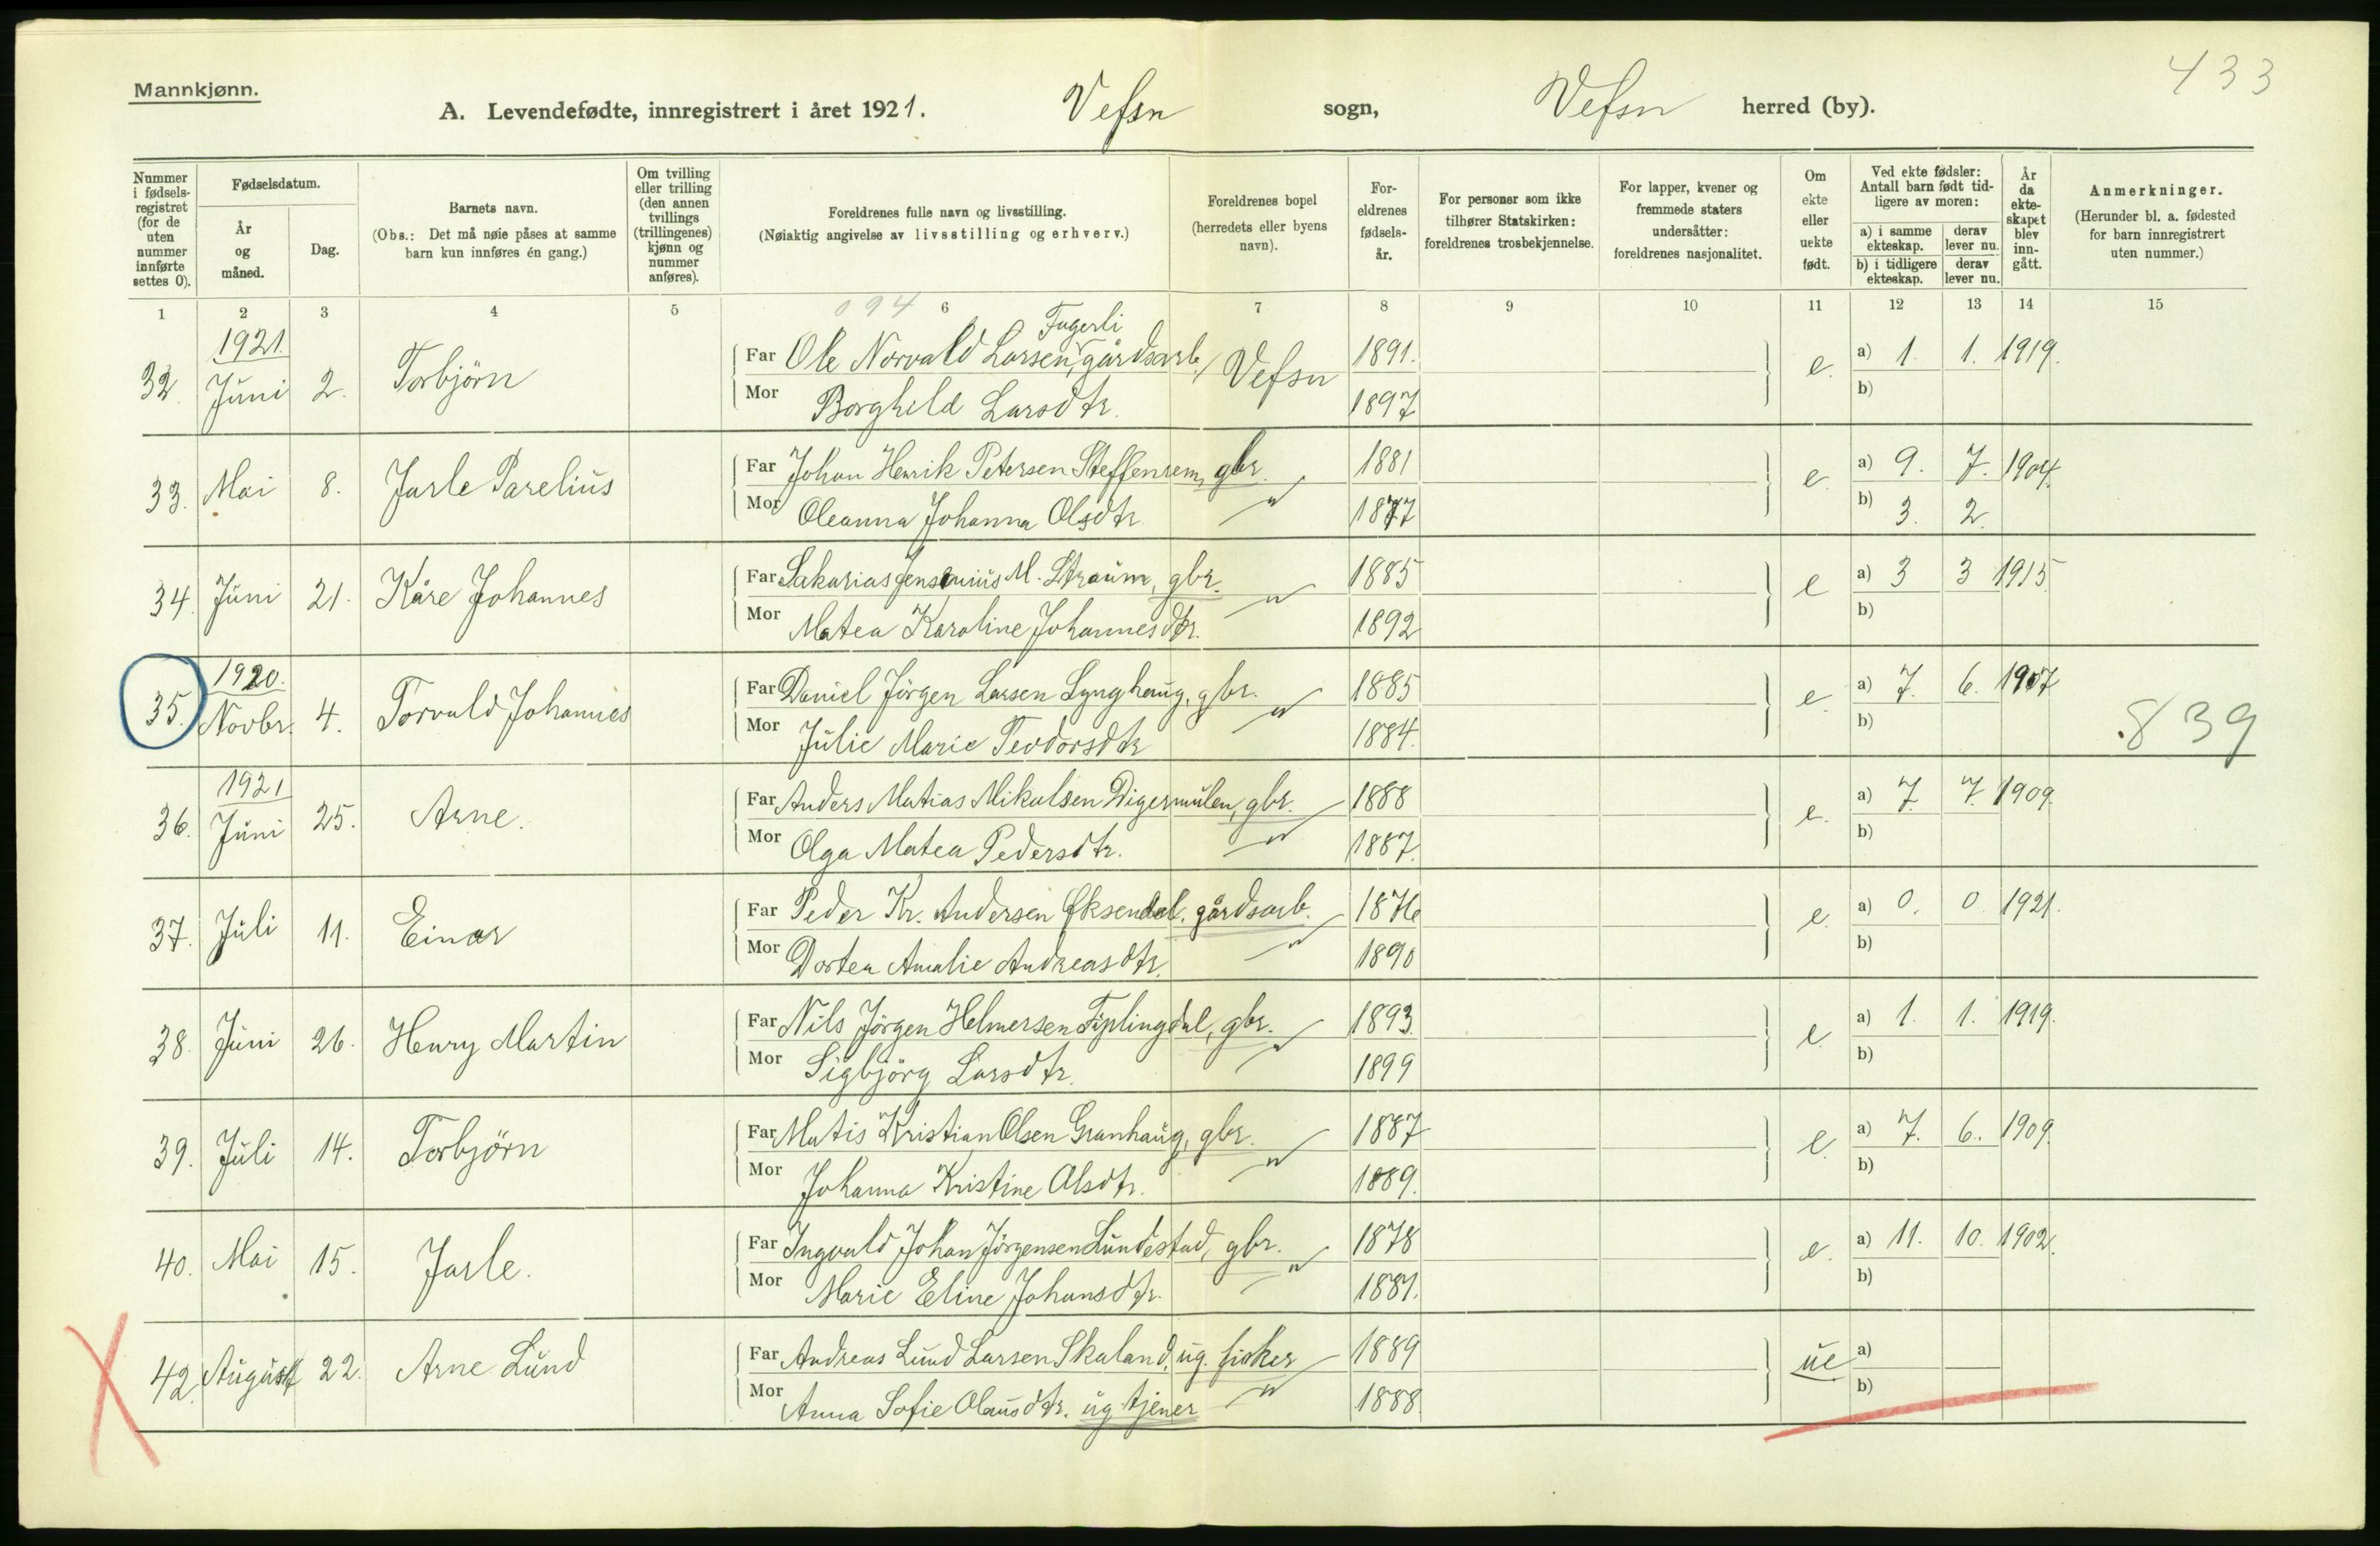 433
Mannkjønn.
A. Levendefødte, innregistrert i året 1921. Vefsn sogn, Vefsn herred (by).
Nummer i fødsels-registret (for de uten nummer innførte settes 0).
Fødselsdatum.
År og måned.
Dag.
Barnets navn.
(Obs.: Det må nøie påses at samme barn kun innføres én gang.)
Om tvilling eller trilling (den annen tvillings (trillingenes) kjønn og nummer anføres).
Foreldrenes fulle navn og livsstilling.
(Nøiaktig angivelse av livsstilling og erhverv.)
Foreldrenes bopel (herredets eller byens navn).
For-eldrenes fødsels-år.
For personer som ikke tilhører Statskirken: foreldrenes trosbekjennelse.
For lapper, kvener og fremmede staters undersåtter: foreldrenes nasjonalitet.
Om ekte eller uekte født.
Ved ekte fødsler: Antall barn født tid-ligere av moren:
a) i samme ekteskap.
derav lever nu.
b) i tidligere ekteskap.
derav lever nu.
År da ekte-skapet blev inn-gått.
Anmerkninger.
(Herunder bl. a. fødested for barn innregistrert uten nummer.)
1 2 3 4 5 6 7 8 9 10 11 12 13 14 15
094
1921.
Fagerli
32. Juni 2. Torbjörn Far Ole Norvald Larsen, gårdsarb. Vefsn 1891. e. a) 1. 1. 1919.
Mor Borghild Larsdtr. 1897 b)
33. Mai 8. Jarle Parelius Far Johan Henrik Petersen Steffenrem, gbr. 1881 e. a) 9. 7. 1904.
Mor Oleanna Johanna Olsdtr. " 1877 b) 3. 2.
34. Juni 21. Kåre Johannes Far Sakarias Jensenius M. Straum, gbr. 1885 e a) 3 3 1915.
Mor Matea Karoline Johannesdtr. " 1892 b)
1920.
35. Novbr. 4. Torvald Johannes Far Daniel Jörgen Larsen Lynghaug, gbr. 1885 e. a) 7. 6. 1907
Mor Julie Marie Teodorsdtr " 1884. b)
839
1921
36. Juni 25. Arne. Far Anders Matias Mikalsen Digermulen, gbr. 1888 e. a) 7. 7. 1909.
Mor Olga Matea Pedersdtr. " 1887. b)
37. Juli 11. Einar Far Peder Kr. Andersen Øksendal. gårdsarb. 1876 e. a) 0. 0 1921.
Mor Dortea Amalie Andreasdtr. " 1890 b)
38. Juni 26. Henry Martin Far Nils Jörgen Helmersen Fiplingdal, gbr. 1893 e. a) 1. 1. 1919.
Mor Sigbjörg Larsdtr. " 1899 b)
39. Juli 14. Torbjörn Far Matis Kristian Olsen Granhaug, gbr. 1887 e. a) 7. 6. 1909.
Mor Johanna Kristine Olsdtr. " 1889. b)
40. Mai 15. Jarle. Far Ingvald Johan Jörgensen Lundestad, gbr. 1878 e. a) 11. 10. 1902.
Mor Marie Eline Johansdtr. " 1881. b)
42. August 22. Arne Lund Far Andreas Lund Larsen Skaland, ug. fisker 1889 ue a)
Mor Anna Sofie Olausdtr. ug tjener " 1888. b)